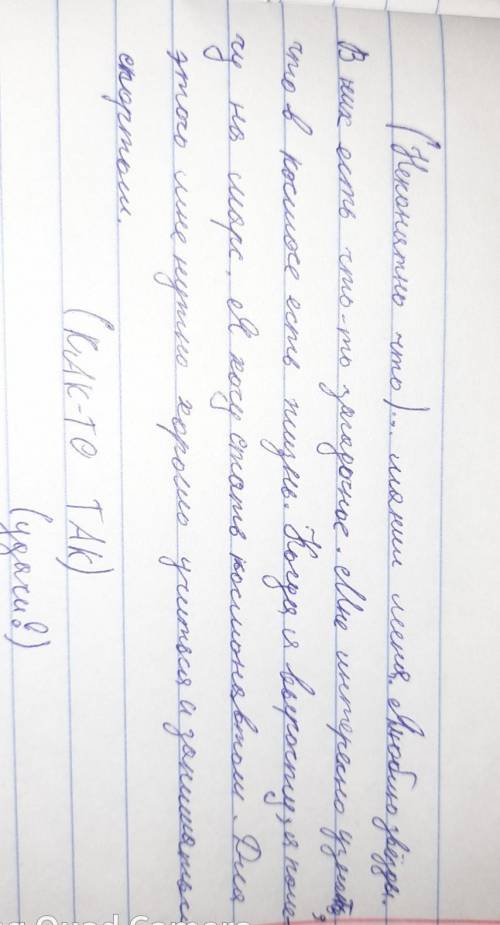 (Непонятно что)... манит меня. Люблю звёзды.
В них есть что-то загадочное. Мне интересно узнать,
что в космосе есть жизнь. Когда я вырасту, я поле-
чу на марс. Я хочу стать космонавтом. Для
этого мне нужно хорошо учиться и заниматься
спортом.
(КАК-ТО ТАК)
(удачи)
Quad Camera